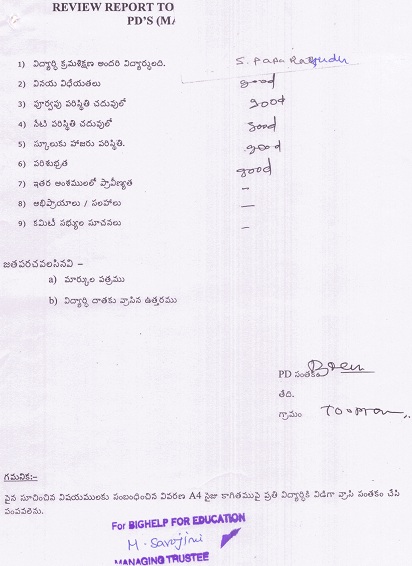 REVIEW REPORT TO
PD'S (MA
1) విద్యార్థి క్రమశిక్షణ అందరి విద్యార్థులది. S. Papa Rayudu
2) వినయ విధేయతలు good
3) పూర్వపు పరిస్థితి చదువులో good
4) నేటి పరిస్థితి చదువులో good
5) స్కూలుకు హాజరు పరిస్థితి. good
6) పరిశుభ్రత good
7) ఇతర అంశములలో ప్రావీణ్యత –
8) అభిప్రాయాలు / సలహాలు —
9) కమిటీ సభ్యుల సూచనలు –
జతపరచవలసినవి –
a) మార్కుల పత్రము
b) విద్యార్థి దాతకు వ్రాసిన ఉత్తరము
PD సంతకం
తేది.
గ్రామం
గమనిక:–
పైన సూచించిన విషయములకు సంబంధించిన వివరణ A4 సైజు కాగితముపై ప్రతి విద్యార్థికి విడిగా వ్రాసి సంతకం చేసి
పంపవలెను.
For BIGHELP FOR EDUCATION
M. Sarojini
MANAGING TRUSTEE